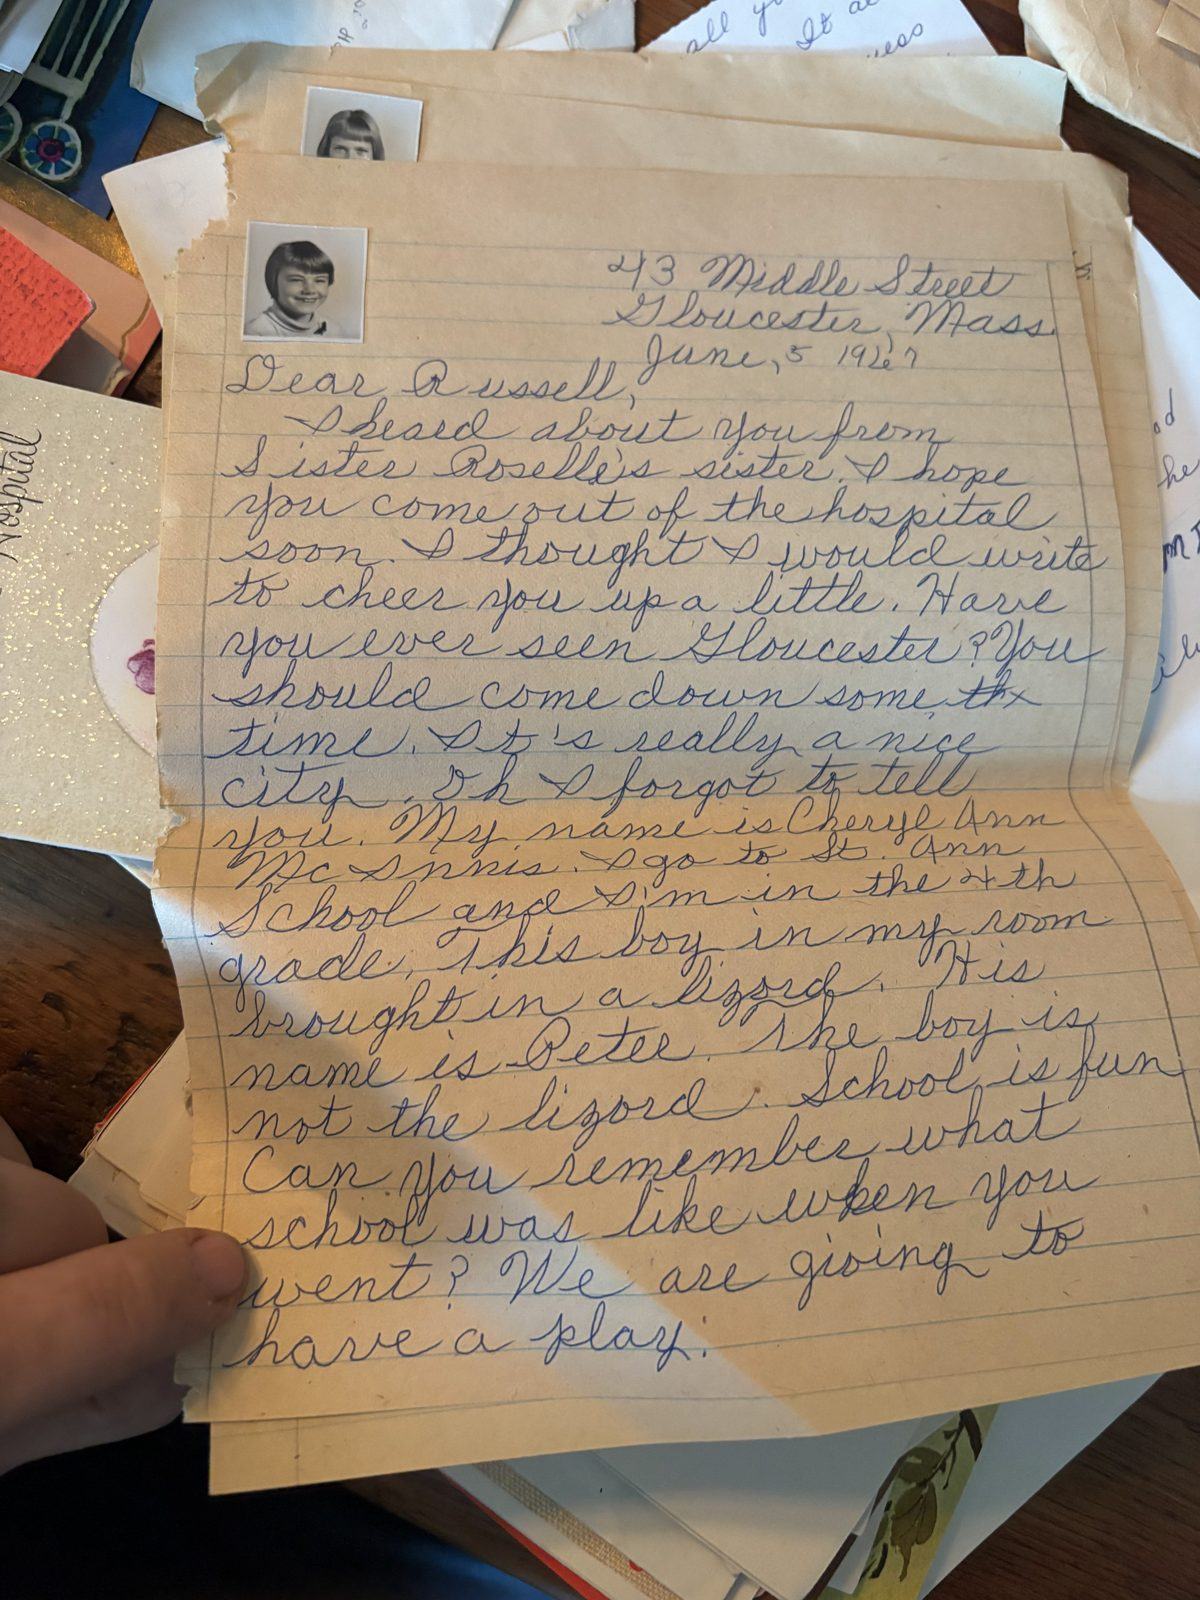 all yo
It a
ness
43 Middle Street
Gloucester, Mass.
June, 5 1967
Dear Russell,
I heard about you from
Sister Roselle's sister. I hope
you come out of the hospital
soon. I thought I would write
to cheer you up a little. Have
you ever seen Gloucester? You
should come down some thx
time. It's really a nice
city. Oh I forgot to tell
you. My name is Cheryl Ann
McInnis. I go to St. Ann
School and I'm in the 4th
grade. This boy in my room
brought in a lizord. His
name is Peter. The boy is
not the lizord. School is fun
Can you remember what
school was like when you
went? We are gioing to
have a play.
Hospital
od
he